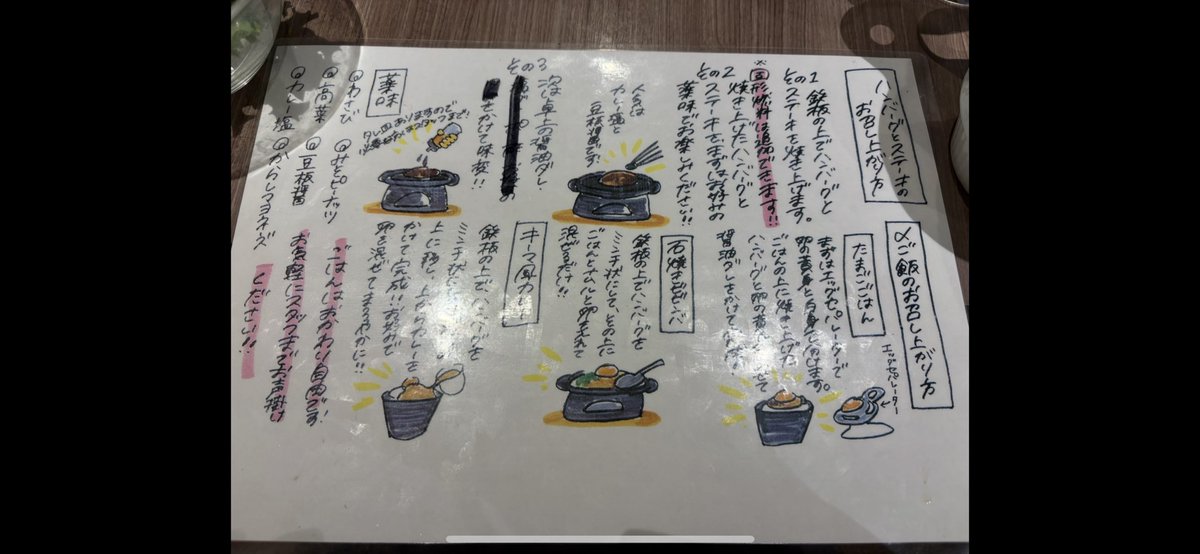 ハンバーグとステーキの
お召し上がり方
その1 鉄板の上でハンバーグと
ステーキを焼き上げます。
※固形燃料は追加できます!!
その2 焼き上げたハンバーグと
ステーキをまずはお好みの
薬味でお楽しみください!!
人気は
カレー塩と
豆板醤です
その3 次は卓上の醤油ダレ
をかけて味変!!
タレ皿ありますので
スタッフまで!
薬味
◎わさび
◎みそピーナッツ
◎高菜
◎豆板醤
◎カレー塩
◎からしマヨネーズ
〆ご飯のお召し上がり方
たまごごはん
まずはエッグセパレーターで
卵の黄身と白身を分けます。
ごはんの上に焼き上げた
ハンバーグと卵の黄身を
醤油ダレをかけて
エッグセパレーター
石焼きビビンバ
鉄板の上でハンバーグを
ミンチ状にして、その上に
ごはんとナムルと卵を入れて
混ぜるだけ!!
キーマ風カレー
鉄板の上でハンバーグを
ミンチ状に
上に移し、上からカレーを
かけて完成!!お好みで
卵を混ぜてまろやかに!!
ごはんはおかわり自由です
お気軽にスタッフまでお声掛け
ください!!